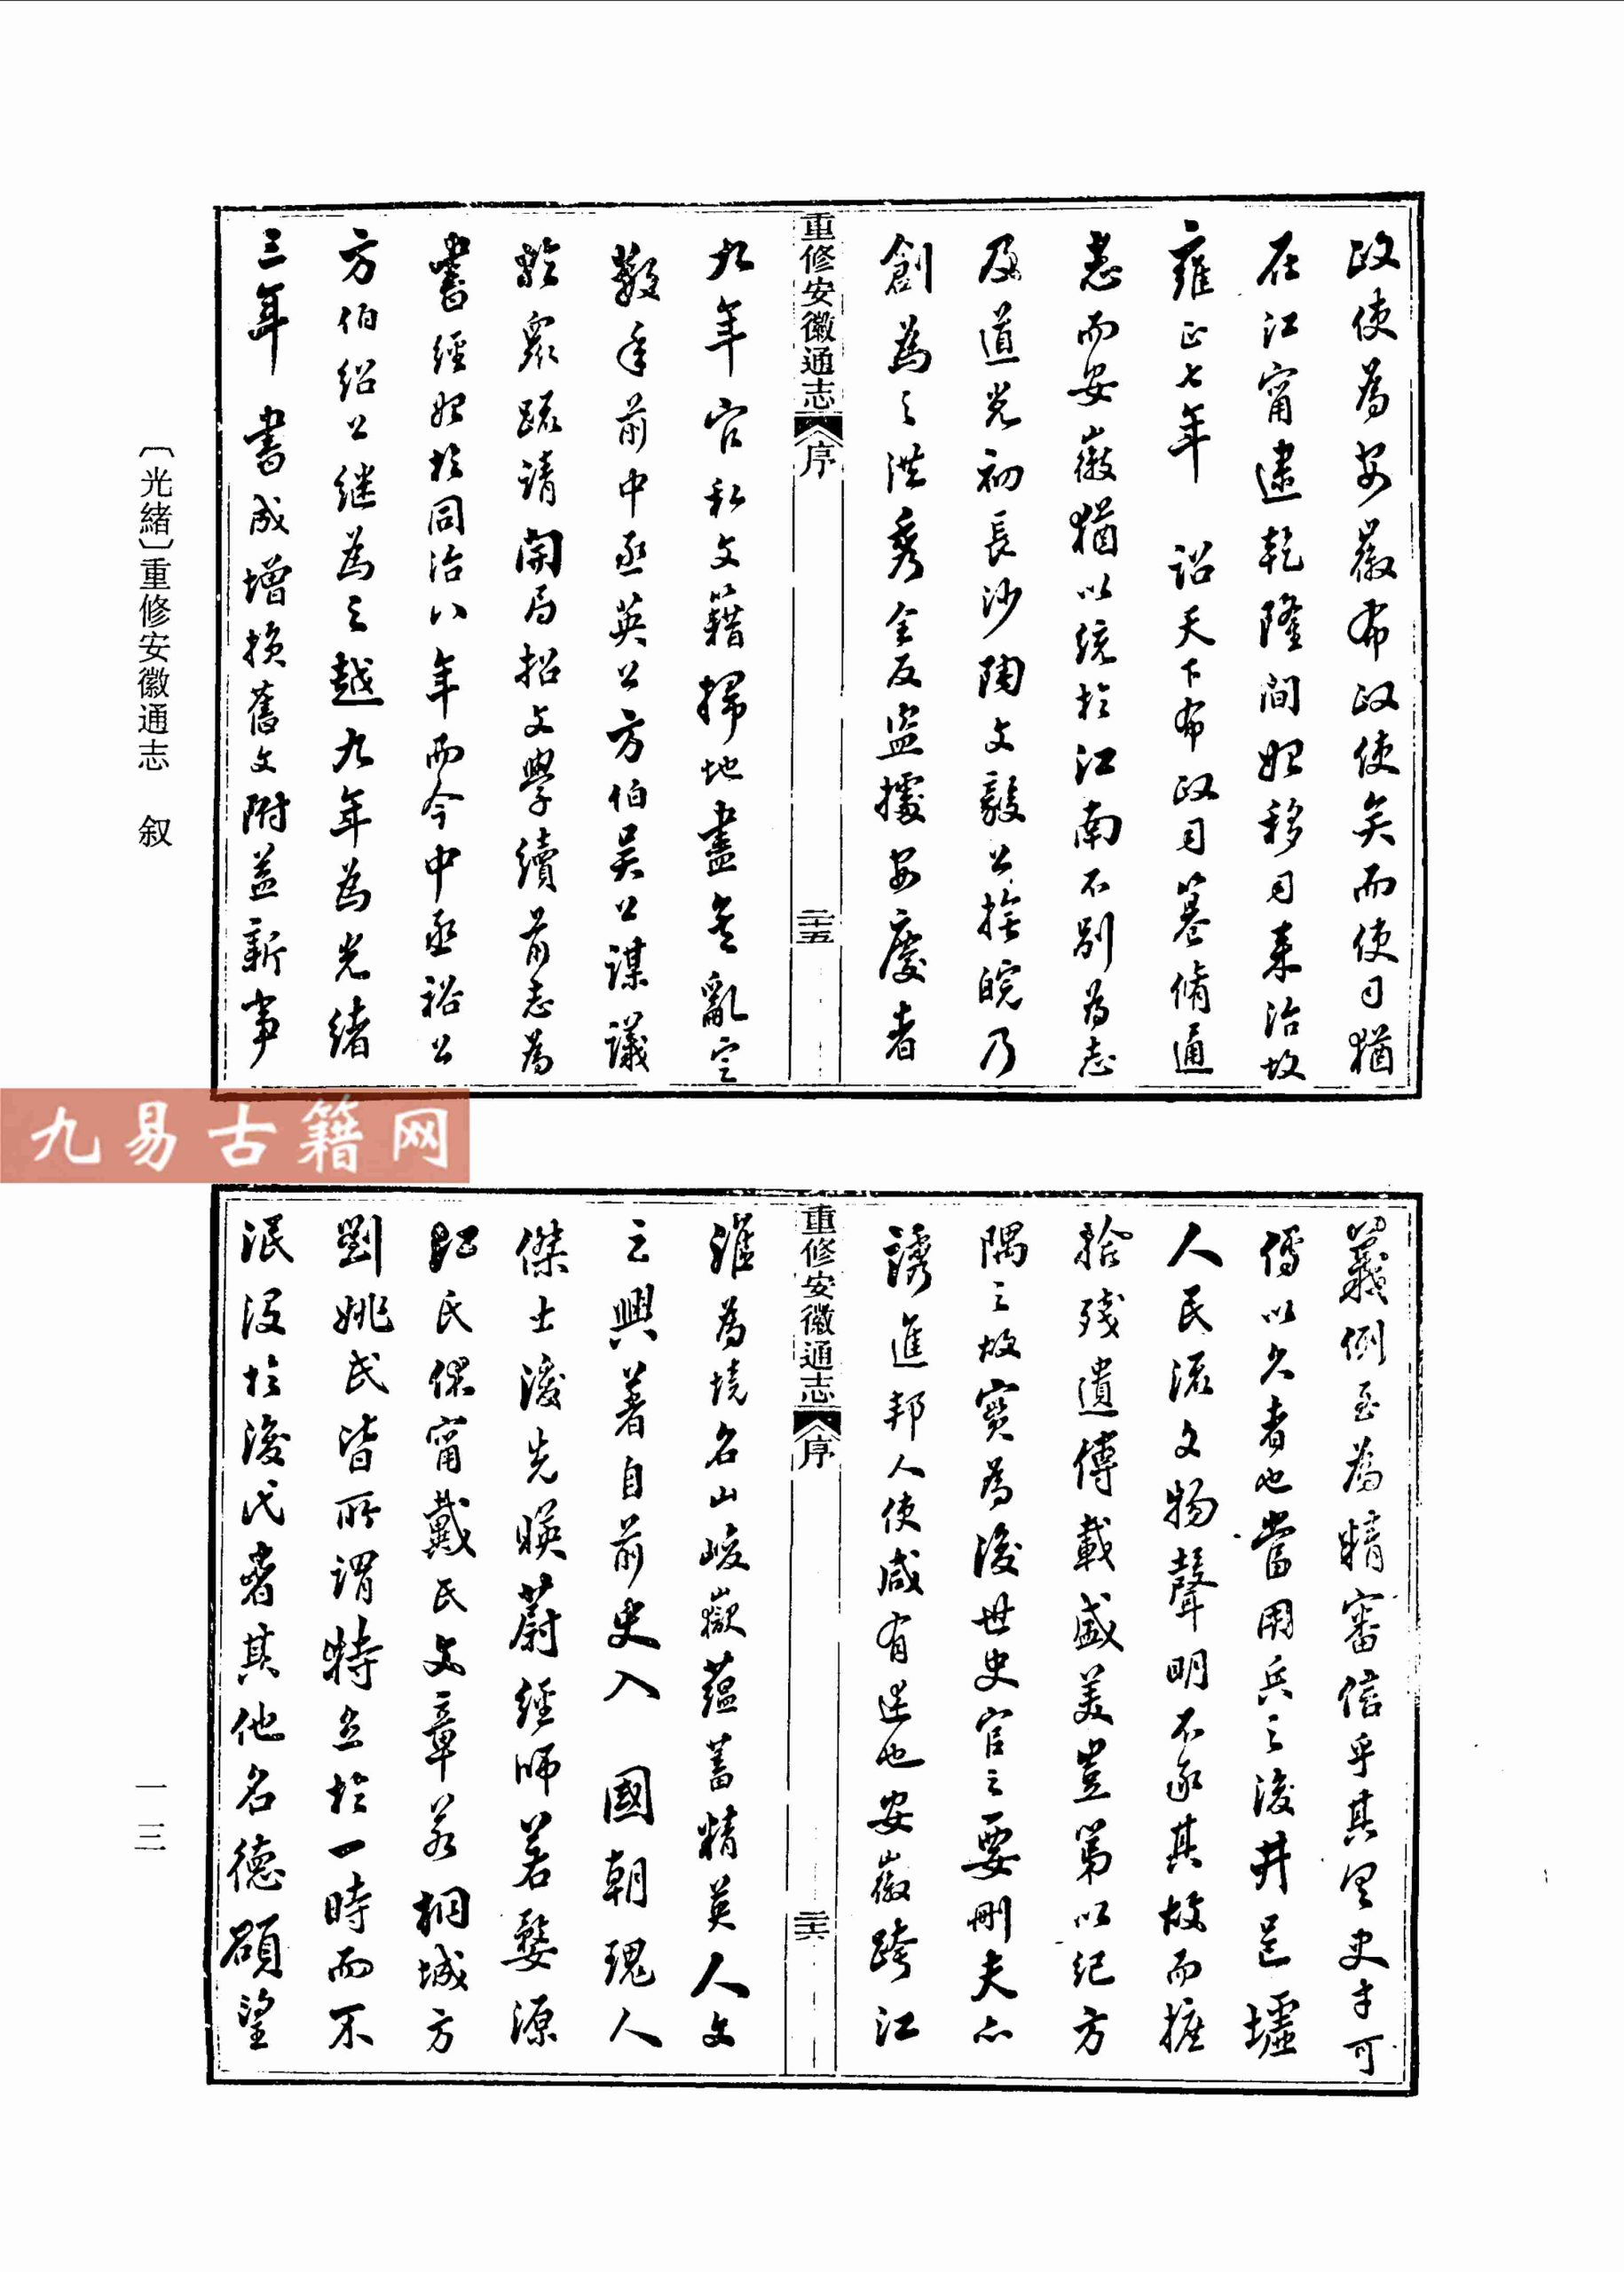 政使為安徽布政使矣而使司猶
在江甯逮乾隆間始移司來治故
雍正七年 詔天下布政司纂脩通
志而安徽猶以統於江南不別為志
及道光初長沙陶文毅公撫皖乃
創為之洪秀全反盜據安慶者
重修安徽通志 序 二十五
九年官私文籍掃地盡矣亂定
數年前中丞英公方伯吳公謀議
於眾疏請開局招文學續前志為
書經始於同治八年而今中丞裕公
方伯紹公繼為之越九年為光緒
三年 書成增損舊文附益新事
義例至為精審信乎其里史才可
傳以久者也當用兵之後井邑墟
人民流文物聲明不承其故而摭
拾殘遺傳載盛美豈第以紀方
隅之故實為後世史官之要刪夫亦
誘進邦人使咸有述也安徽跨江
重修安徽通志 序 二十六
淮為境名山峻嶽蘊蓄精英人文
之興著自前史入 國朝瑰人
傑士後先暎蔚經師若婺源
江氏休甯戴氏文章若桐城方
劉姚氏皆所謂特立於一時而不
泯沒於後氏者其他名德碩望
〔光緒〕重修安徽通志 叙
一三
九易古籍网